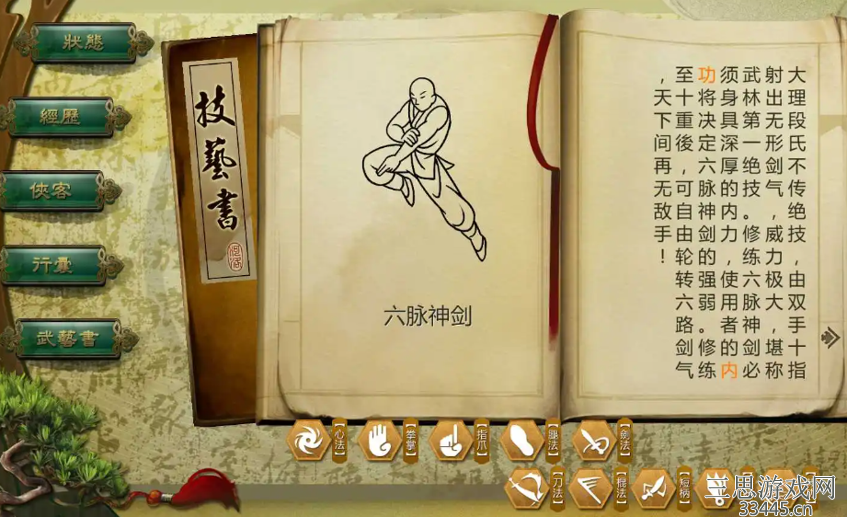 狀態
經歷
俠客
行囊
武藝書
技藝書
六脉神剑
大理段氏不传绝技,由双手十指
射出无形剑气,威力极大,堪称
武林第一绝技。修练六脉神剑必
须身具深厚的内力,使用者的内
功将决定六脉神剑的强弱。修练
至十重後,可自由轮转六路剑气
,天下间再无敌手!
【心法】
【拳掌】
【指爪】
【腿法】
【劍法】
【刀法】
【棍法】
【短柄】
立思游戏网
33445.cn